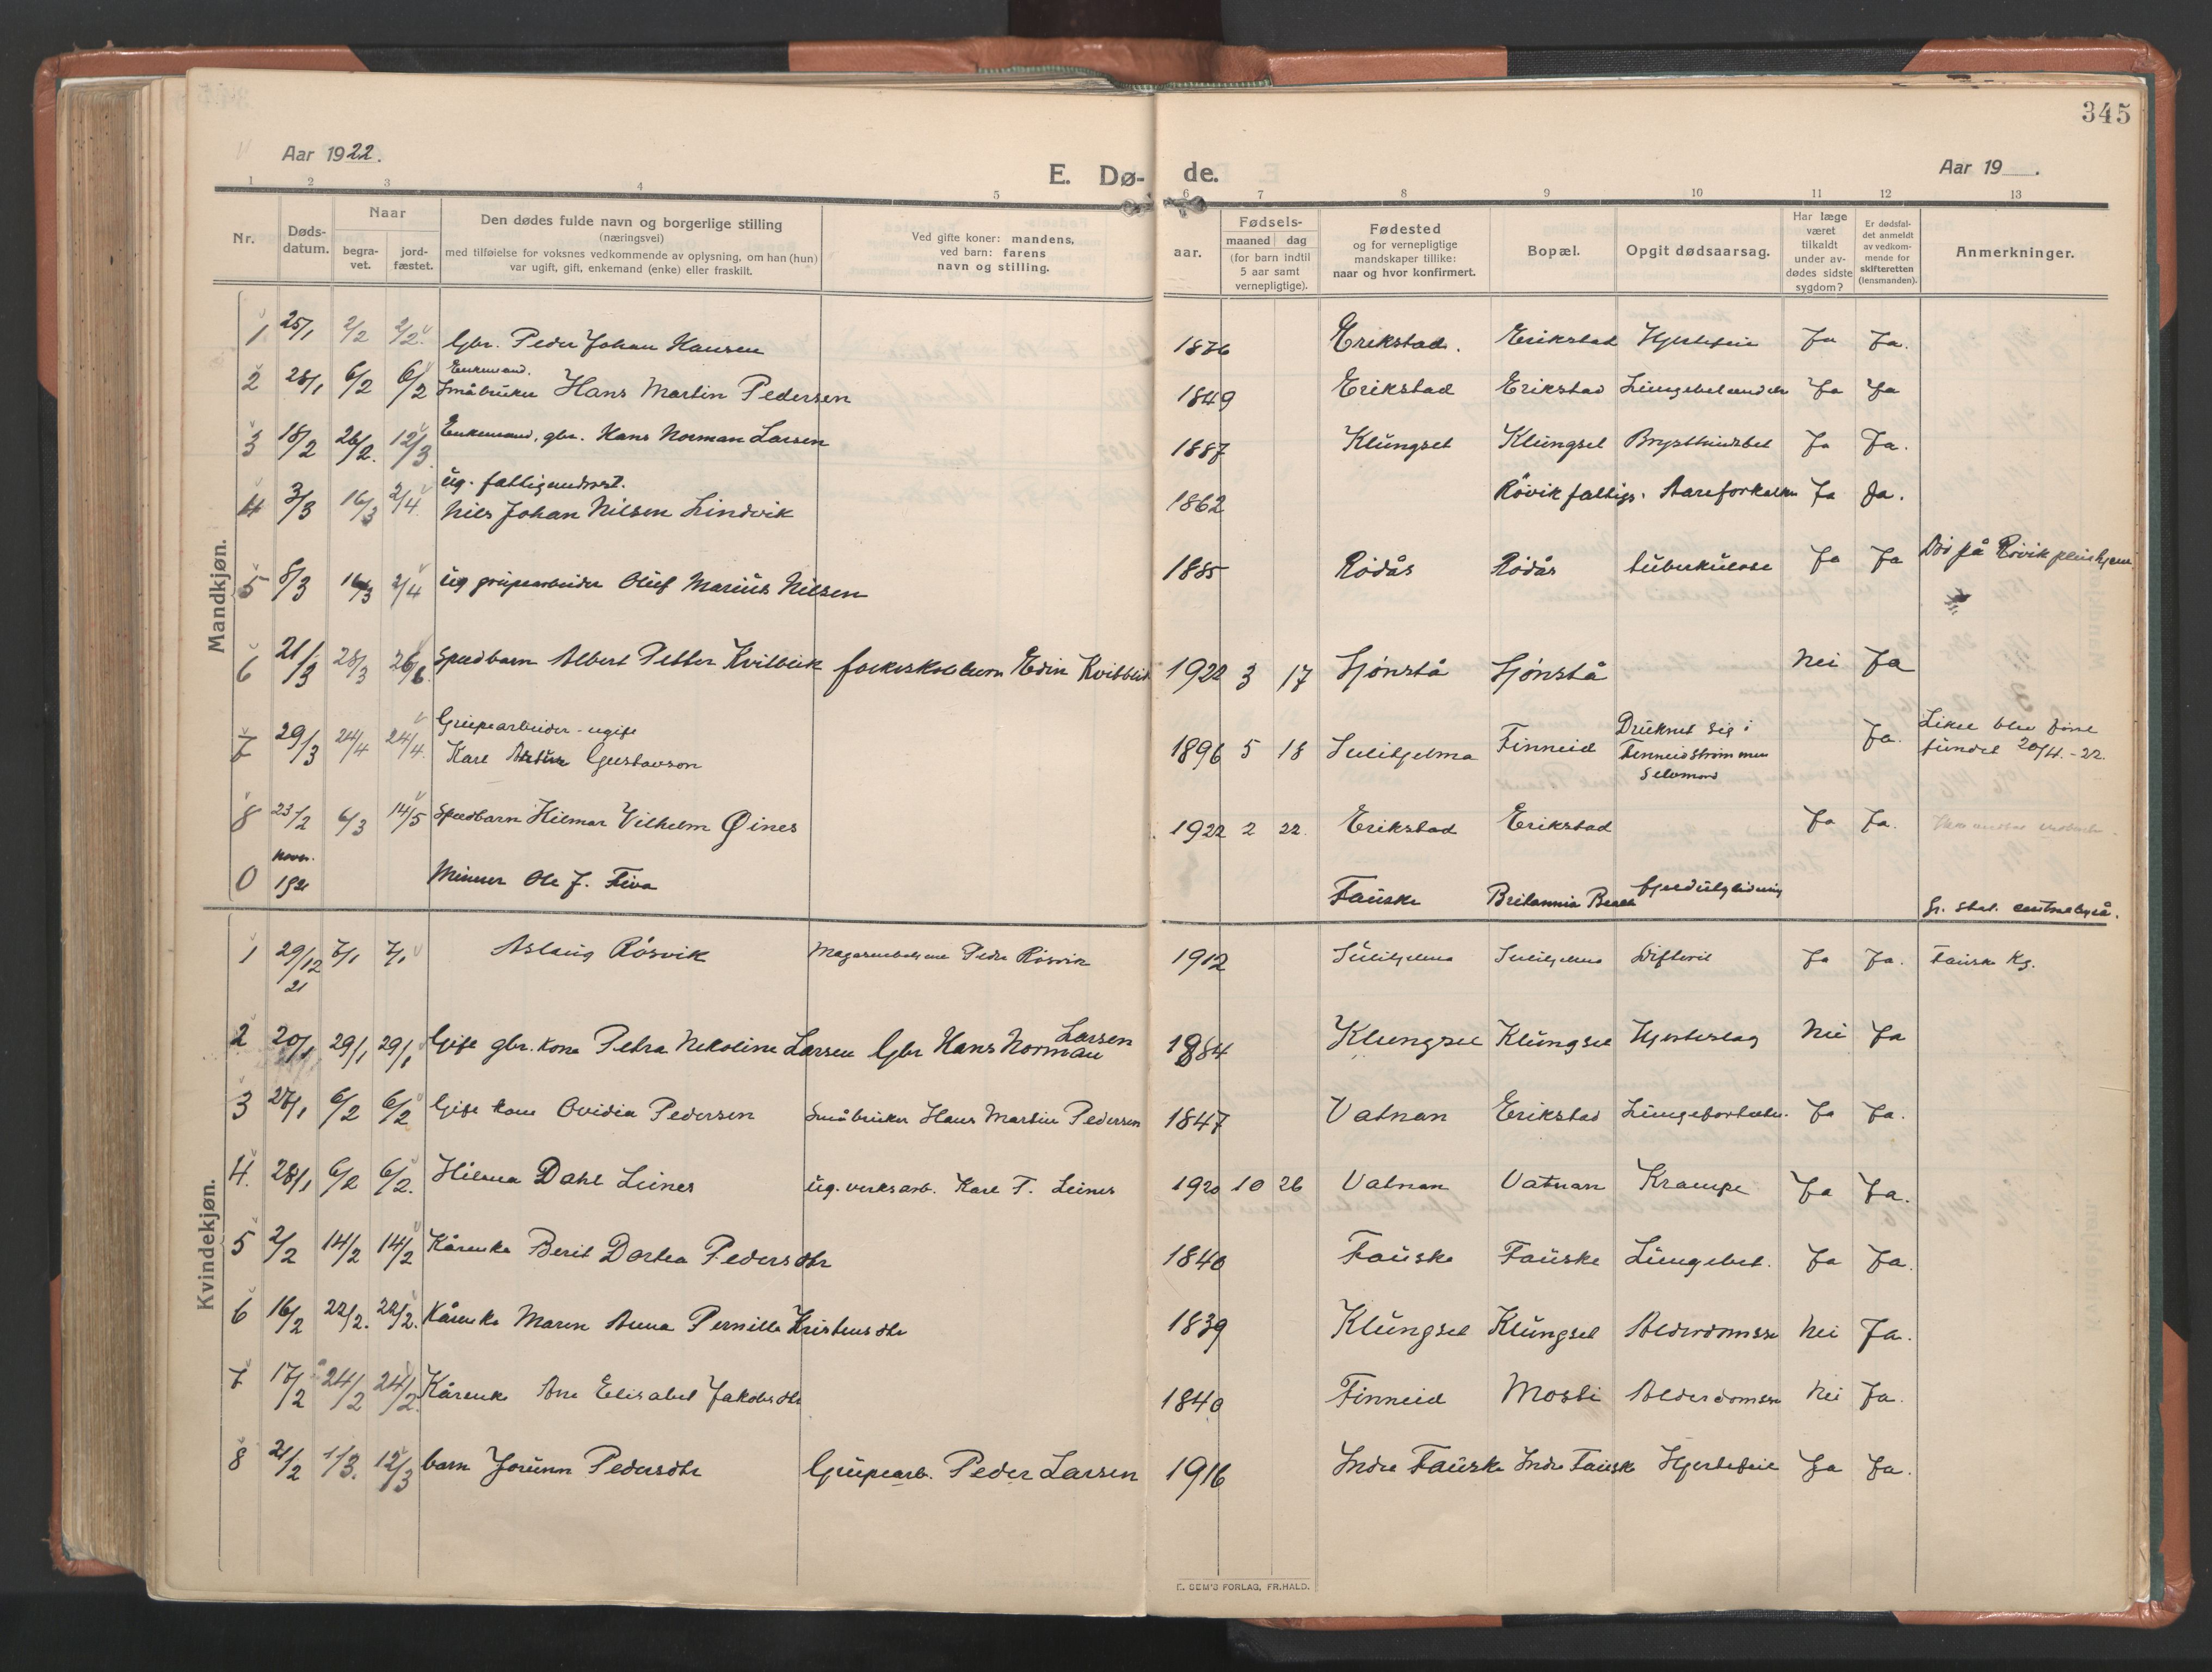 345
Aar 1922.
E. Dø- de.
Aar 19 .
1 2 3 4 5 6 7 8 9 10 11 12 13
Nr.
Døds-
datum.
Naar
begra-
vet.
jord-
fæstet.
Den dødes fulde navn og borgerlige stilling
(næringsvei)
med tilføielse for voksnes vedkommende av oplysning, om han (hun)
var ugift, gift, enkemand (enke) eller fraskilt.
Ved gifte koner: mandens,
ved barn: farens
navn og stilling.
Fødsels-
aar.
maaned dag
(for barn indtil
5 aar samt
vernepligtige).
Fødested
og for vernepligtige
mandskaper tillike:
naar og hvor konfirmert.
Bopæl.
Opgit dødsaarsag.
Har læge
været
tilkaldt
under av-
dødes sidste
sygdom?
Er dødsfal-
det anmeldt
av vedkom-
mende for
skifteretten
(lensmanden).
Anmerkninger.
Mandkjøn.
1 25/1 2/2 2/2. Gbr. Peder Johan Hansen 1876 Erikstad. Erikstad Hjertefeil Ja Ja.
Enkemand.
2 28/1 6/2 6/2 Småbruker Hans Martin Pedersen 1849 Erikstad Erikstad Lungebetændelse Ja Ja
3 18/2 26/2. 12/3. Enkemand, gbr. Hans Norman Larsen 1887 Klungset Klungset Ja Ja.
ug. fattigunderst.
4 3/3 16/3 2/4. Nils Johan Nilsen Lindvik 1862 Røvik fattigs. Aareforkalkn Ja Ja.
5 8/3 16/3 2/4 ug grubearbeider Oluf Marius Nilsen 1885 Rødås Rødås tuberkulose Ja Ja Død på Røvik pleiehjem
6 21/3 28/3 26/6. Spedbarn Albert Petter Kvitblik Edin Kvitblik 1922 3 17 Sjønstå Sjønstå Nei Ja
Grubearbeider - ugift
7 29/3 24/4 24/4. Karl Artur Gustavson 1896 5 18 Sulitjelma Finneid Druknet sig i
Finneidstrømmen
Selvmord
Ja. Liket blev først
fundet 20/4.-22.
8 23/2 6/3 14/5 Spedbarn Hilmar Vilhelm Øines 1922 2 22. Erikstad Erikstad Ja Ja.
0 novbr.
1921
Minner Ole J. Fiva Fauske Britannia Beach fjeldutglidning
fr. stat. centralbyrå.
Kvindekjøn.
1 29/12 21 7/1 7/1 Aslaug Røsvik Peder Røsvik 1912 Sulitjelma Sulitjelma Difteri Ja Ja. Fauske Kg.
2 20/1 29/1 29/1 Gift gbr. kone Petra Nikoline Larsen Gbr Hans Norman Larsen 1884 Klungset Klungset Hjerteslag Nei Ja
3 27/1 6/2 6/2 Gift kone Ovidia Pedersen Småbruker Hans Martin Pedersen 1847 Vatnan Erikstad Ja Ja.
4. 28/1 6/2 6/2. Hilma Dahl Leines ug. verksarb. Karl F. Leines 1920 10 26 Vatnan Vatnan Krampe Ja Ja.
5 2/2 14/2 14/2 Kårenke Berit Dortea Pedersdtr 1840 Fauske Fauske Lungebet. Ja Ja.
6 16/2 22/2. 22/2. Kårenke Maren Anna Pernille Kristensdtr 1839 Klungset Klungset Alderdomssv Nei Ja.
7 17/2 24/2 24/2. Kårenke Ane Elisabet Jakobsdtr 1840 Finneid Mosti Alderdomssv Nei Ja.
8 21/2 1/3. 12/3 barn Jorunn Pedersdtr Grubearb. Peder Larsen 1916 Indre Fauske Indre Fauske Hjertefeil Ja Ja.
E. SEM'S FORLAG, FR.HALD.